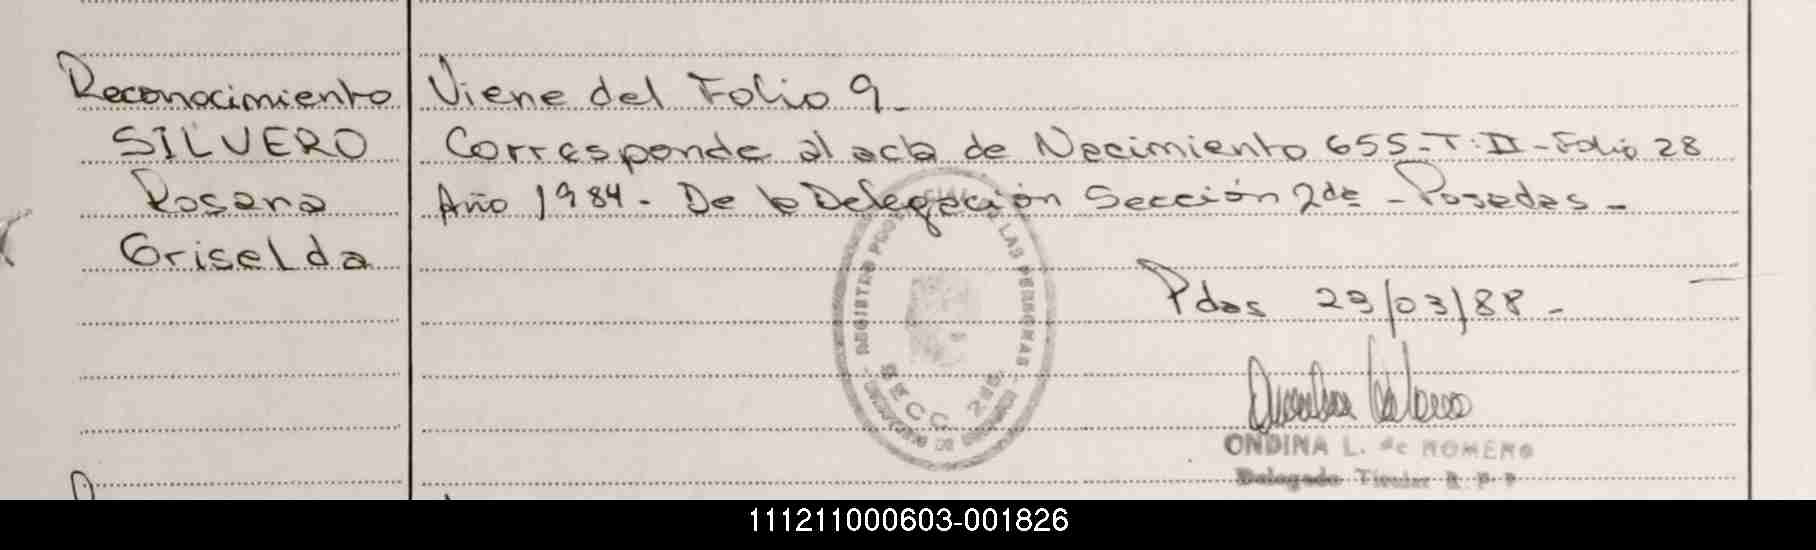 Reconocimiento
SILVERO
Rosana
Griselda
Viene del Folio 9-
Corresponde al acta de Nacimiento 655-T:II-Folio 28
Año 1984- De la Delegación Sección 2da - Posadas-
Pdas 29/03/88-
REGISTRO PCO LAS PERSONAS
SECC. 2da.
ONDINA L. de ROMERO
Delegada Titular R. P. P
111211000603-001826